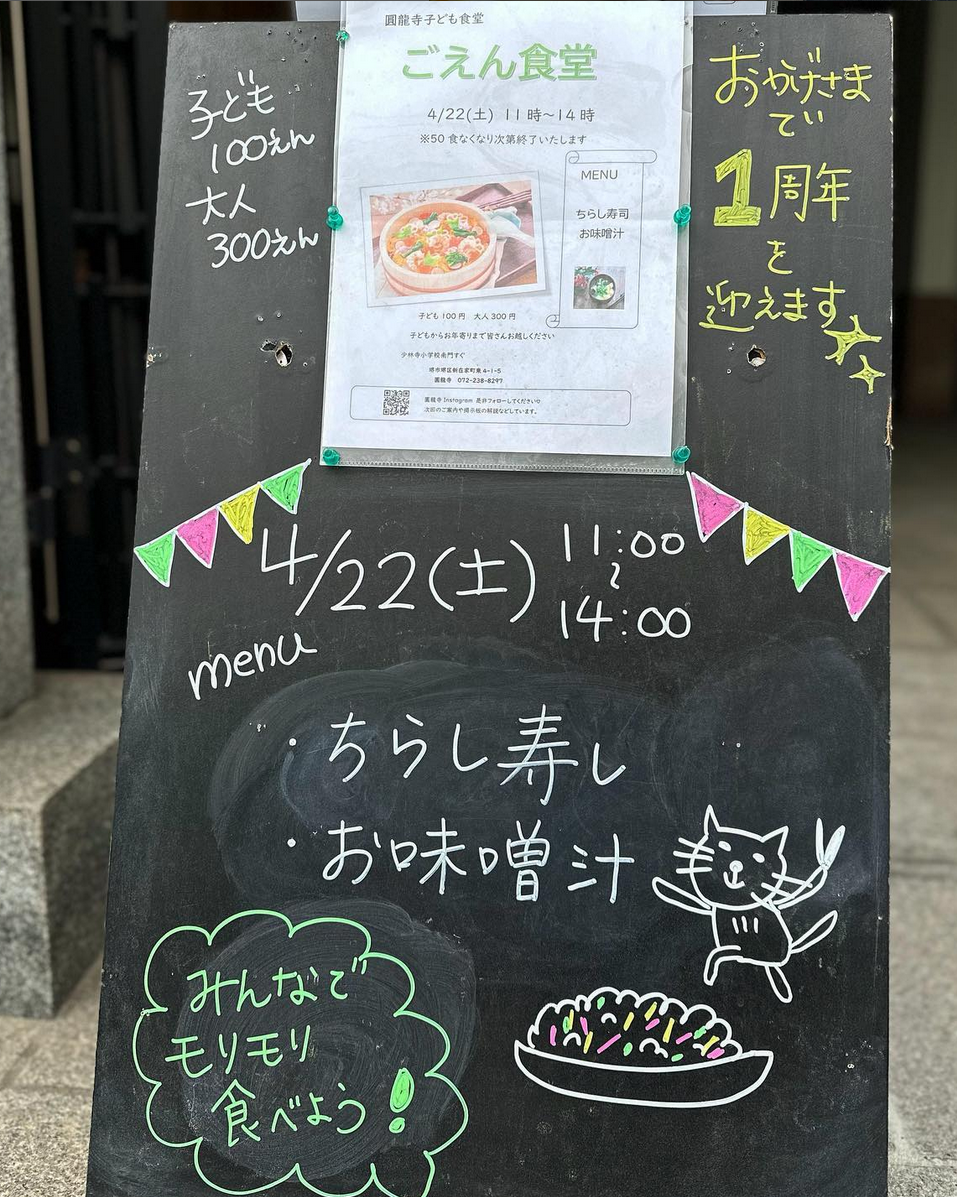 圓龍寺子ども食堂
ごえん食堂
4/22(土) 11時~14時
※50食なくなり次第終了いたします
MENU
ちらし寿司
お味噌汁
子ども100円 大人300円
子どもからお年寄りまで皆さんお越しください
少林寺小学校南門すぐ
堺市堺区新在家町東4-1-5
圓龍寺 072-238-8297
圓龍寺Instagram 是非フォローしてください♡
次回のご案内や掲示板の解説などしています。
子ども
100えん
大人
300えん
おかげさま
で
1周年
を
迎えます
4/22(土) 11:00
~
14:00
menu
・ちらし寿し
・お味噌汁
みんなで
モリモリ
食べよう!